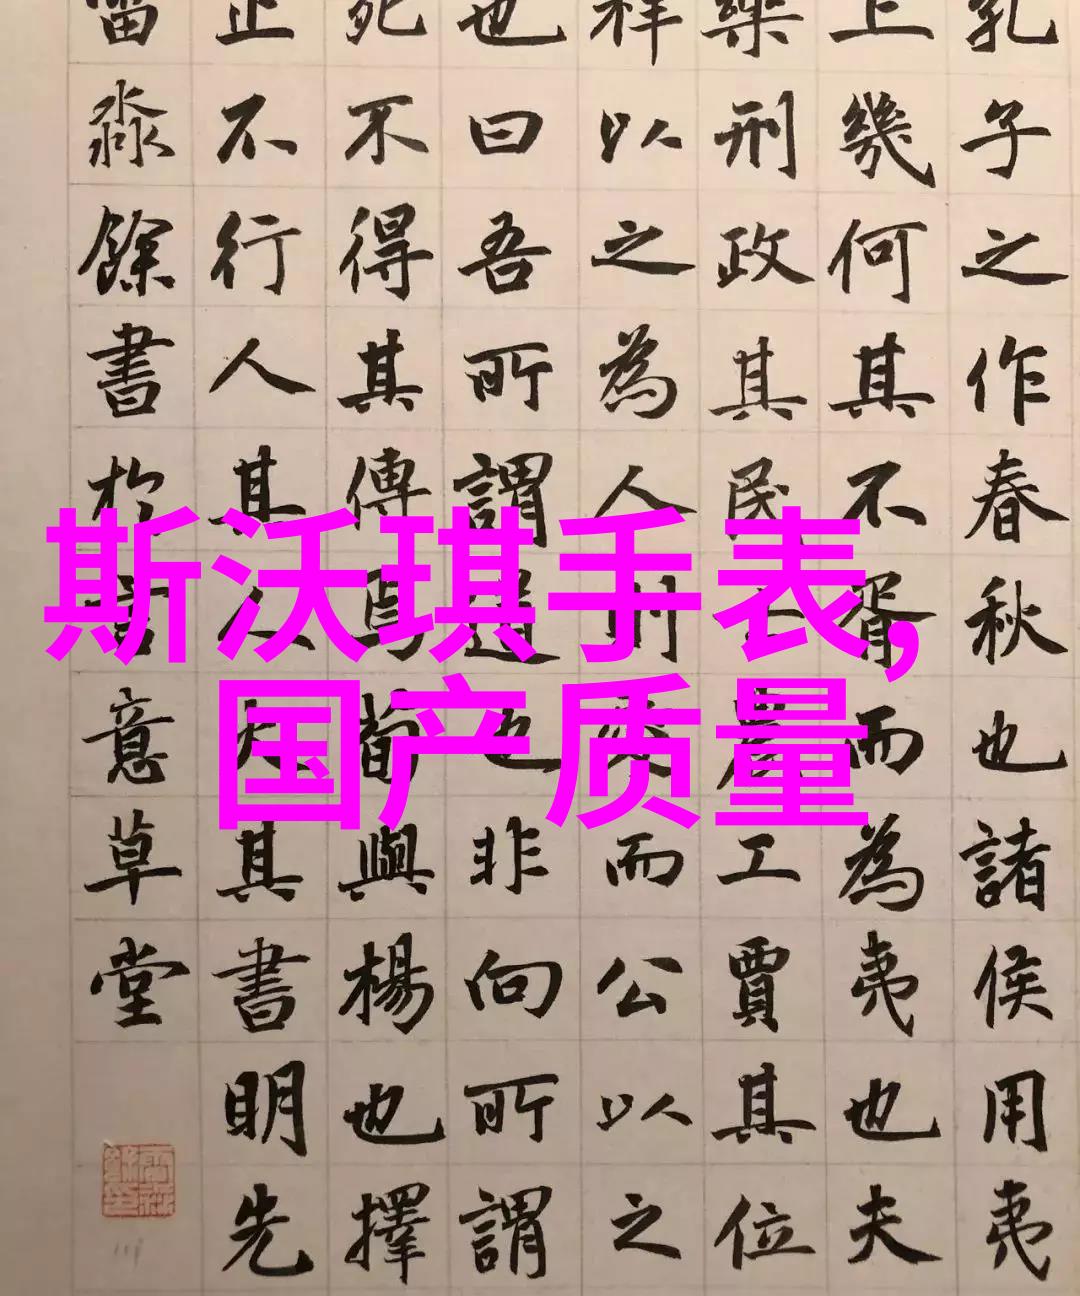 孔子之作春秋也諸侯用夷
上幾何其不胥而為夷也夫
樂刑政其民農工賈其位
祥以之為人則愛而公以之
也曰吾所謂道也非向所謂
死不得其傳焉荀與楊也擇
止不行人其人火其書明先
淼餘書於意草堂
斯沃琪手表，
国产质量